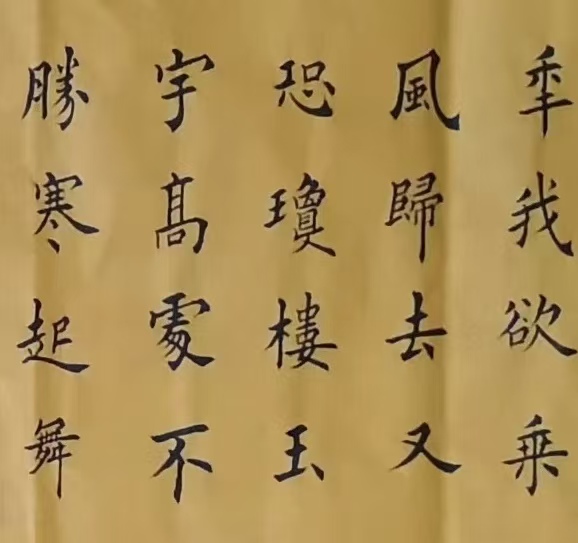 秊我欲乗
風歸去又
恐瓊樓玉
宇髙處不
勝寒起舞